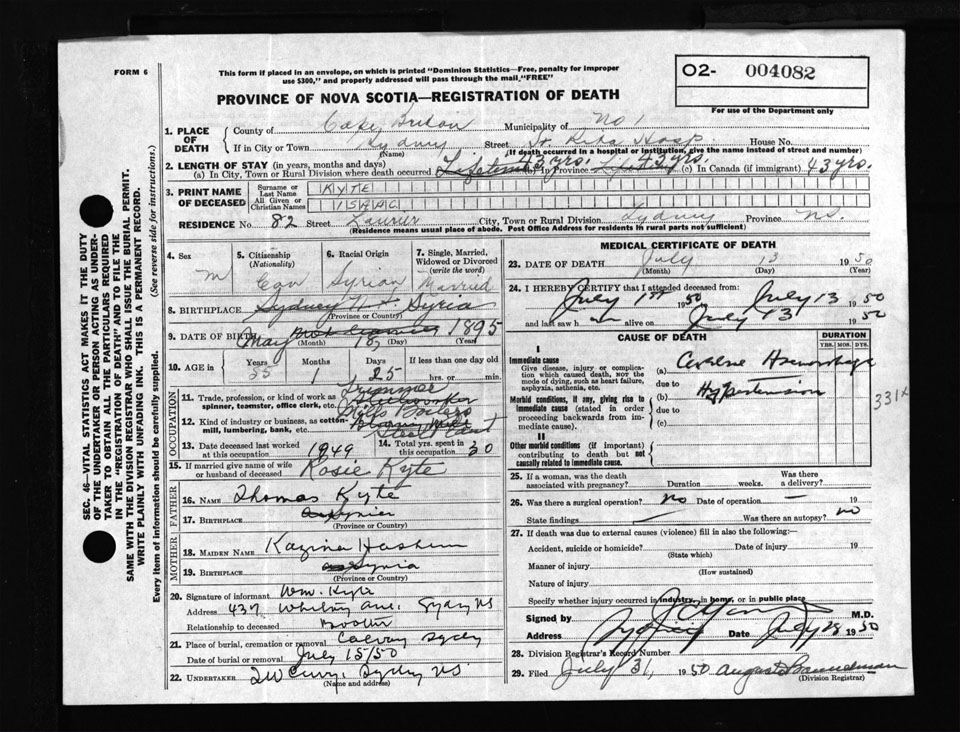 FORM 6
This form if placed in an envelope, on which is printed "Dominion Statistics—Free, penalty for improper
use $300," and properly addressed will pass through the mail "FREE"
O2- 004082
For use of the Department only
PROVINCE OF NOVA SCOTIA—REGISTRATION OF DEATH
1. PLACE OF DEATH
County of Cape Breton Municipality of No 1
If in City or Town Sydney Street St Rita Hosp House No.
(Name) (If death occurred in a hospital or institution, give the name instead of street and number)
2. LENGTH OF STAY (in years, months and days)
(a) In City, Town or Rural Division where death occurred Lifetime 43 yrs. (b) In Province Lifetime 43 yrs. (c) In Canada (if immigrant) 43 yrs.
3. PRINT NAME OF DECEASED
Surname or Last Name KYTE
All Given or Christian Names ISAAC
RESIDENCE No 82 Street Laurier City, Town or Rural Division Sydney Province NS.
(Residence means usual place of abode. Post Office Address for residents in rural parts not sufficient)
4. Sex m
5. Citizenship (Nationality) Can
6. Racial Origin Syrian
7. Single, Married, Widowed or Divorced (write the word) Married
8. BIRTHPLACE Sydney N.S. Syria
(Province or Country)
9. DATE OF BIRTH May 18 1895
(Month) (Day) (Year)
10. AGE in Years 55 Months 1 Days 25 If less than one day old
hrs. or min.
OCCUPATION
11. Trade, profession, or kind of work as spinner, teamster, office clerk, etc. Trimmer
12. Kind of industry or business, as cotton-mill, lumbering, bank, etc. Steel Plant
13. Date deceased last worked at this occupation 1949
14. Total yrs. spent in this occupation 30
15. If married give name of wife or husband of deceased Rosie Kyte
FATHER
16. NAME Thomas Kyte
17. BIRTHPLACE
(Province or Country)
MOTHER
18. MAIDEN NAME Hashem
19. BIRTHPLACE Syria
(Province or Country)
20. Signature of informant Wm. Kyte
Address 437 Whitney Ave. Sydney NS
Relationship to deceased Brother
21. Place of burial, cremation or removal Calvary Sydney
Date of burial or removal July 15/50
22. UNDERTAKER Curry, Sydney NS.
(Name and address)
MEDICAL CERTIFICATE OF DEATH
23. DATE OF DEATH July 13 1950
(Month) (Day) (Year)
24. I HEREBY CERTIFY that I attended deceased from:
July 1st 1950 July 13 1950
and last saw h im alive on July 13 1950
CAUSE OF DEATH
DURATION
YRS. MOS. DYS.
I
Immediate cause
Give disease, injury or complication which caused death, NOT the mode of dying, such as heart failure, asphyxia, asthenia, etc.
(a) Cerebral Haemorrhage
due to
Morbid conditions, if any, giving rise to immediate cause (stated in order proceeding backwards from immediate cause).
(b) Hypertension
due to
(c)
331X
II
Other morbid conditions (if important) contributing to death but not causally related to immediate cause.
25. If a woman, was the death associated with pregnancy? Duration weeks. Was there a delivery?
26. Was there a surgical operation? no Date of operation — 19
State findings Was there an autopsy? no
27. If death was due to external causes (violence) fill in also the following:
Accident, suicide or homicide? Date of injury 19
(State which)
Manner of injury
(How sustained)
Nature of injury
Specify whether injury occurred in industry, in home, or in public place
Signed by M.D.
Address Sydney Date July 28 1950
28. Division Registrar's Record Number
29. Filed July 31, 1950
(Division Registrar)
SEC. 46—VITAL STATISTICS ACT MAKES IT THE DUTY
OF THE UNDERTAKER OR PERSON ACTING AS UNDER-
TAKER TO OBTAIN ALL THE PARTICULARS REQUIRED
IN THE "REGISTRATION OF DEATH" AND TO FILE THE
SAME WITH THE DIVISION REGISTRAR WHO SHALL ISSUE THE BURIAL PERMIT.
WRITE PLAINLY WITH UNFADING INK. THIS IS A PERMANENT RECORD.
Every item of information should be carefully supplied. (See reverse side for instructions.)